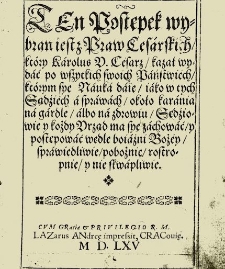 TEn Postępek wy-
bran iest z Praw Cesárskich/
który Károlus V. Cesarz/ kazał wy-
dáć po wszytkich swoich Páństwiech/
którym sye Náuká dáie/ iáko w tych
Sądziech á spráwách/ około karánia
ná gárdle/ álbo ná zdrowiu/ Sędzio-
wie y kożdy Vrząd ma sye záchowáć/ y
postępowáć wedle boiáźni Bożey/
spráwiedliwie/ pobożnie/ rostro-
pnie/ y nie skwápliwie.
CVM GRatia & PRIVILEGIO R. M.
LAZarus ANdreę impressit, CRACouię.
M D. LXV